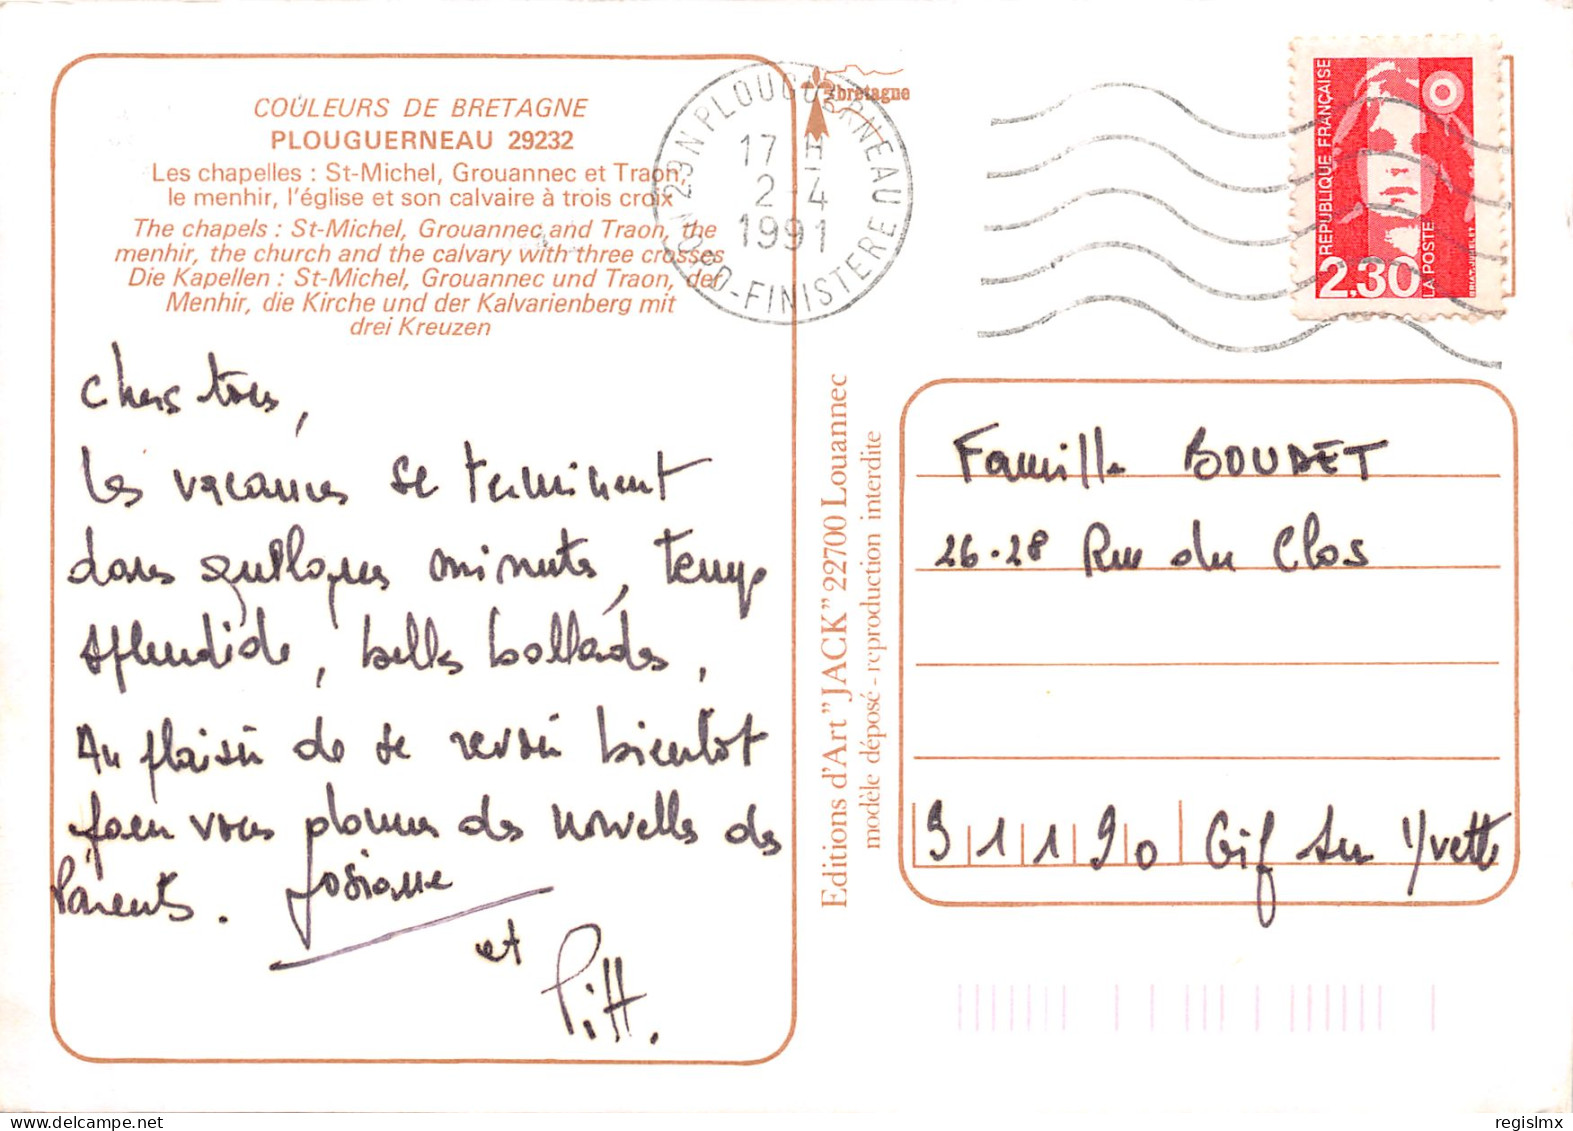 COULEURS DE BRETAGNE
PLOUGUERNEAU 29232
Les chapelles : St-Michel, Grouannec et Traon,
le menhir, l'église et son calvaire à trois croix
The chapels : St-Michel, Grouannec and Traon, the
menhir, the church and the calvary with three crosses
Die Kapellen : St-Michel, Grouannec und Traon, der
Menhir, die Kirche und der Kalvarienberg mit
drei Kreuzen
Chers tous,
Les vacances se terminent
dans quelques minutes, temps
splendide, belles ballades,
Au plaisir de se revoir bientôt
pour vous donner des nouvelles des
Parents. Josiane
et
Pitt.
29N PLOUGUERNEAU
17 H
2-4
1991
NORD-FINISTERE
bretagne
REPUBLIQUE FRANÇAISE
LA POSTE
2,30
Editions d'Art "JACK" 22700 Louannec
modèle déposé - reproduction interdite
Famille BOUDET
26-28 Rue du Clos
91190 Gif sur Yvette
regislmx